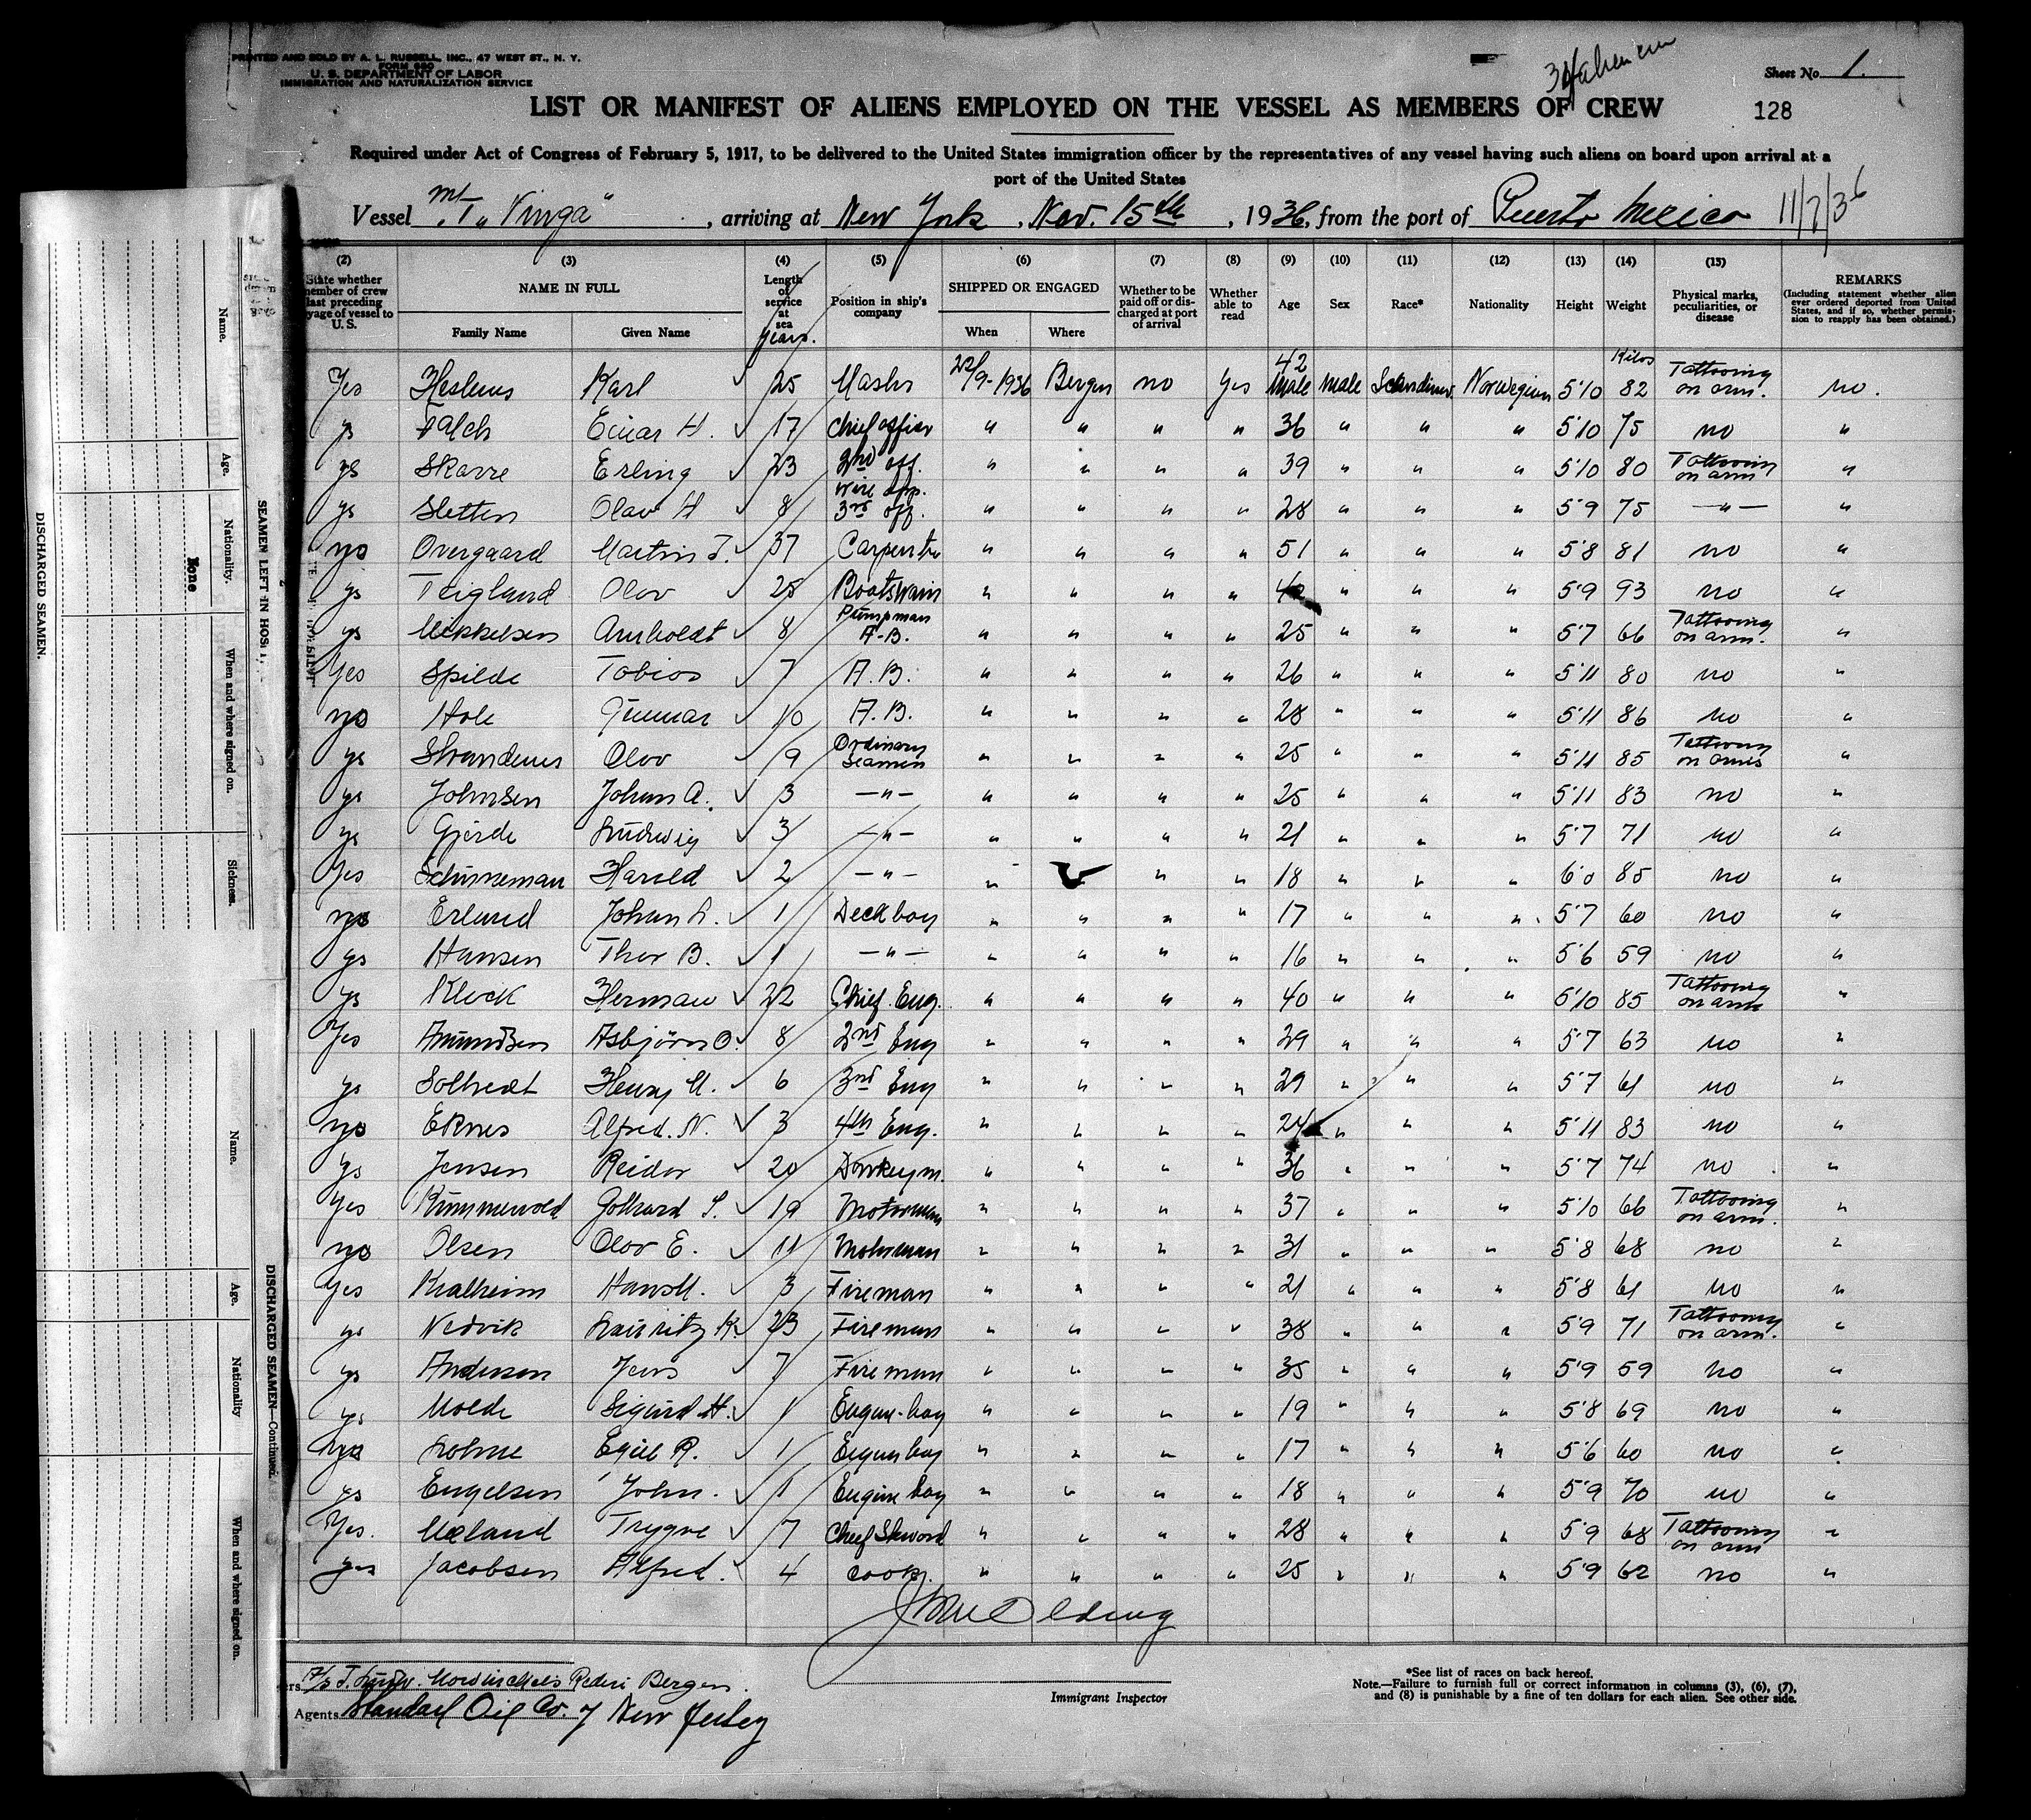 PRINTED AND SOLD BY A. L. RUSSELL, INC., 47 WEST ST., N. Y.
FORM 680
U. S. DEPARTMENT OF LABOR
IMMIGRATION AND NATURALIZATION SERVICE
Sheet No. 1.
LIST OR MANIFEST OF ALIENS EMPLOYED ON THE VESSEL AS MEMBERS OF CREW
128
Required under Act of Congress of February 5, 1917, to be delivered to the United States immigration officer by the representatives of any vessel having such aliens on board upon arrival at a
port of the United States
Vessel M/T "Vinga", arriving at New York, Nov. 15th, 1936, from the port of Puerto Mexico 11/7/36
(2) (3) (4) (5) (6) (7) (8) (9) (10) (11) (12) (13) (14) (15)
State whether member of crew last preceding voyage of vessel to U. S. NAME IN FULL Family Name Given Name Length of service at sea years. Position in ship's company SHIPPED OR ENGAGED When Where Whether to be paid off or discharged at port of arrival Whether able to read Age Sex Race* Nationality Height Weight Physical marks, peculiarities, or disease REMARKS (Including statement whether alien ever ordered deported from United States, and if so, whether permission to reapply has been obtained.)
Kilos
Yes Karl 25 Master 22/9-1936 Bergen no Yes 42 Male male Scandinav. Norwegian 5'10 82 Tattooing on arm. no.
ys Falch Einar H. 17 Chief officer " " " " 36 " " " 5'10 75 no "
ys Skarre Erling 23 2nd off. " " " " 39 " " " 5'10 80 Tattooing on arm "
ys Sletten Olav H 8 Wire opp. 3rd off. " " " " 28 " " " 5'9 75 —"— "
no Overgaard Martin J. 37 Carpenter " " " " 51 " " " 5'8 81 no "
ys Teigland Olav 25 Boatswain " " " " 42 " " " 5'9 93 no "
ys Mikkelsen Arnholdt 8 Pumpman A-B. " " " " 25 " " " 5'7 66 Tattooing on arm. "
Yes Spilde Tobias 7 A.B. " " " " 26 " " " 5'11 80 no "
no Hole Gunnar 10 A.B. " " " " 28 " " " 5'11 86 no "
ys Strandenes Olav 9 Ordinary Seamen " " " " 25 " " " 5'11 85 Tattooing on arms "
ys Johnsen Johan A. 3 —"— " " " " 25 " " " 5'11 83 no "
ys Gjerde Ludwig 3 —"— " " " " 21 " " " 5'7 71 no "
Yes Schünneman Harald 2 —"— " " " 18 " " " 6'0 85 no "
no Erland Johan L. 1 Deckboy " " " " 17 " " " 5'7 60 no "
ys Hansen Thor B. 1 —"— " " " " 16 " " " 5'6 59 no "
ys Klock Herman 22 Chief. Eng. " " " " 40 " " " 5'10 85 Tattooing on arm "
Yes Amundsen Asbjörn O. 8 2nd Eng " " " " 29 " " " 5'7 63 no "
ys Solhvedt Henry M. 6 3rd Eng " " " " 29 " " " 5'7 61 no "
no Eknes Alfred. N. 3 4th Eng. " " " " 24 " " " 5'11 83 no "
ys Jensen Reidar 20 Donkeym. " " " " 36 " " " 5'7 74 no "
Yes Gothard S. 19 Motorman " " " " 37 " " " 5'10 66 Tattooing on arm. "
no Olsen Olav E. 11 Motorman " " " " 31 " " " 5'8 68 no "
Yes Kvalheim Hans M. 3 Fireman " " " " 21 " " " 5'8 61 no "
ys Nedvik Lauritz K. 23 Fireman " " " " 38 " " " 5'9 71 Tattooing on arm. "
ys Andersen Jens 7 Fireman " " " " 35 " " " 5'9 59 no "
ys Molde Sigurd H. 1 Engine-boy " " " " 19 " " " 5'8 69 no "
no Lohne Egill R. 1 Engine boy " " " " 17 " " " 5'6 60 no "
ys Engelsen John. 1 Engine boy " " " " 18 " " " 5'9 70 no "
Yes. Mæland Trygve 7 Chief Steward " " " " 28 " " " 5'9 68 Tattooing on arm "
yes Jacobsen Alfred. 4 Cook. " " " " 25 " " " 5'9 62 no "
A/S J. Ludw. Mowinckels Rederi Bergen.
Agents Standard Oil Co. of New Jersey
Immigrant Inspector
*See list of races on back hereof.
Note.—Failure to furnish full or correct information in columns (3), (6), (7),
and (8) is punishable by a fine of ten dollars for each alien. See other side.
DISCHARGED SEAMEN.
SEAMEN LEFT IN HOS
Name.
Age.
Nationality.
None
When and where signed on.
Sickness.
DISCHARGED SEAMEN—Continued.
Name.
Age.
Nationality
When and where signed on.